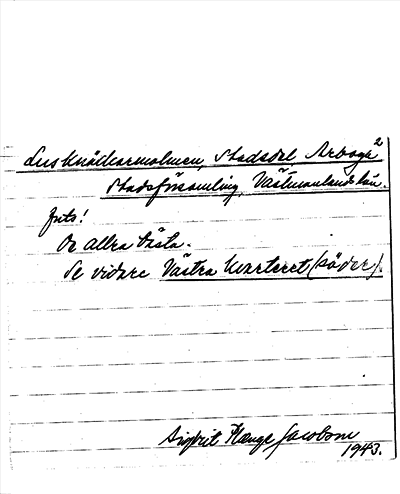 Lusknäckarmolmen, Stadsdel, Arboga 2
Stadsförsamling, Västmanlands län.
De allra bästa.
Se vidare Västra kvarteret (söder).
Sigfrid Jacobson
1943.